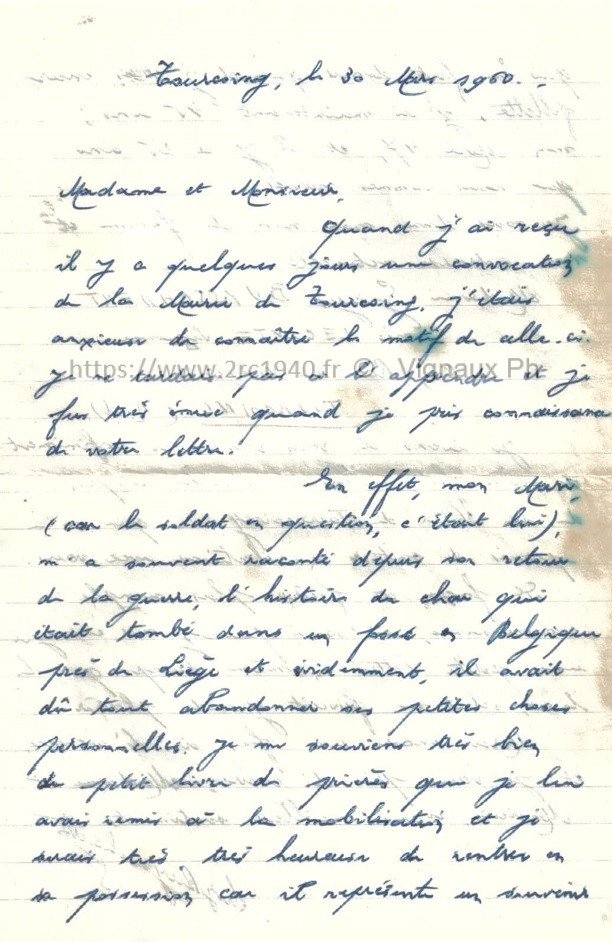 Tourcoing, le 30 Mars 1960.-
Madame et Monsieur,
Quand j'ai reçu
il y a quelques jours une convocation
de la Mairie de Tourcoing, j'étais
anxieuse de connaître le motif de celle-ci.
https://www.2rc1940.fr © Vignaux Ph-
Je ne tardais pas à l'apprendre et je
fus très émue quand je pris connaissance
de votre lettre.
En effet, mon Mari,
(car le soldat en question, c'était lui),
m'a souvent raconté depuis son retour
de la guerre, l'histoire du char qui
était tombé dans un fossé en Belgique
près de Liège et évidemment, il avait
dû tout abandonner ses petites choses
personnelles. Je me souviens très bien
du petit livre de prières que je lui
avais remis à la mobilisation et je
serais très, très heureuse de rentrer en
sa possession car il représente un souvenir